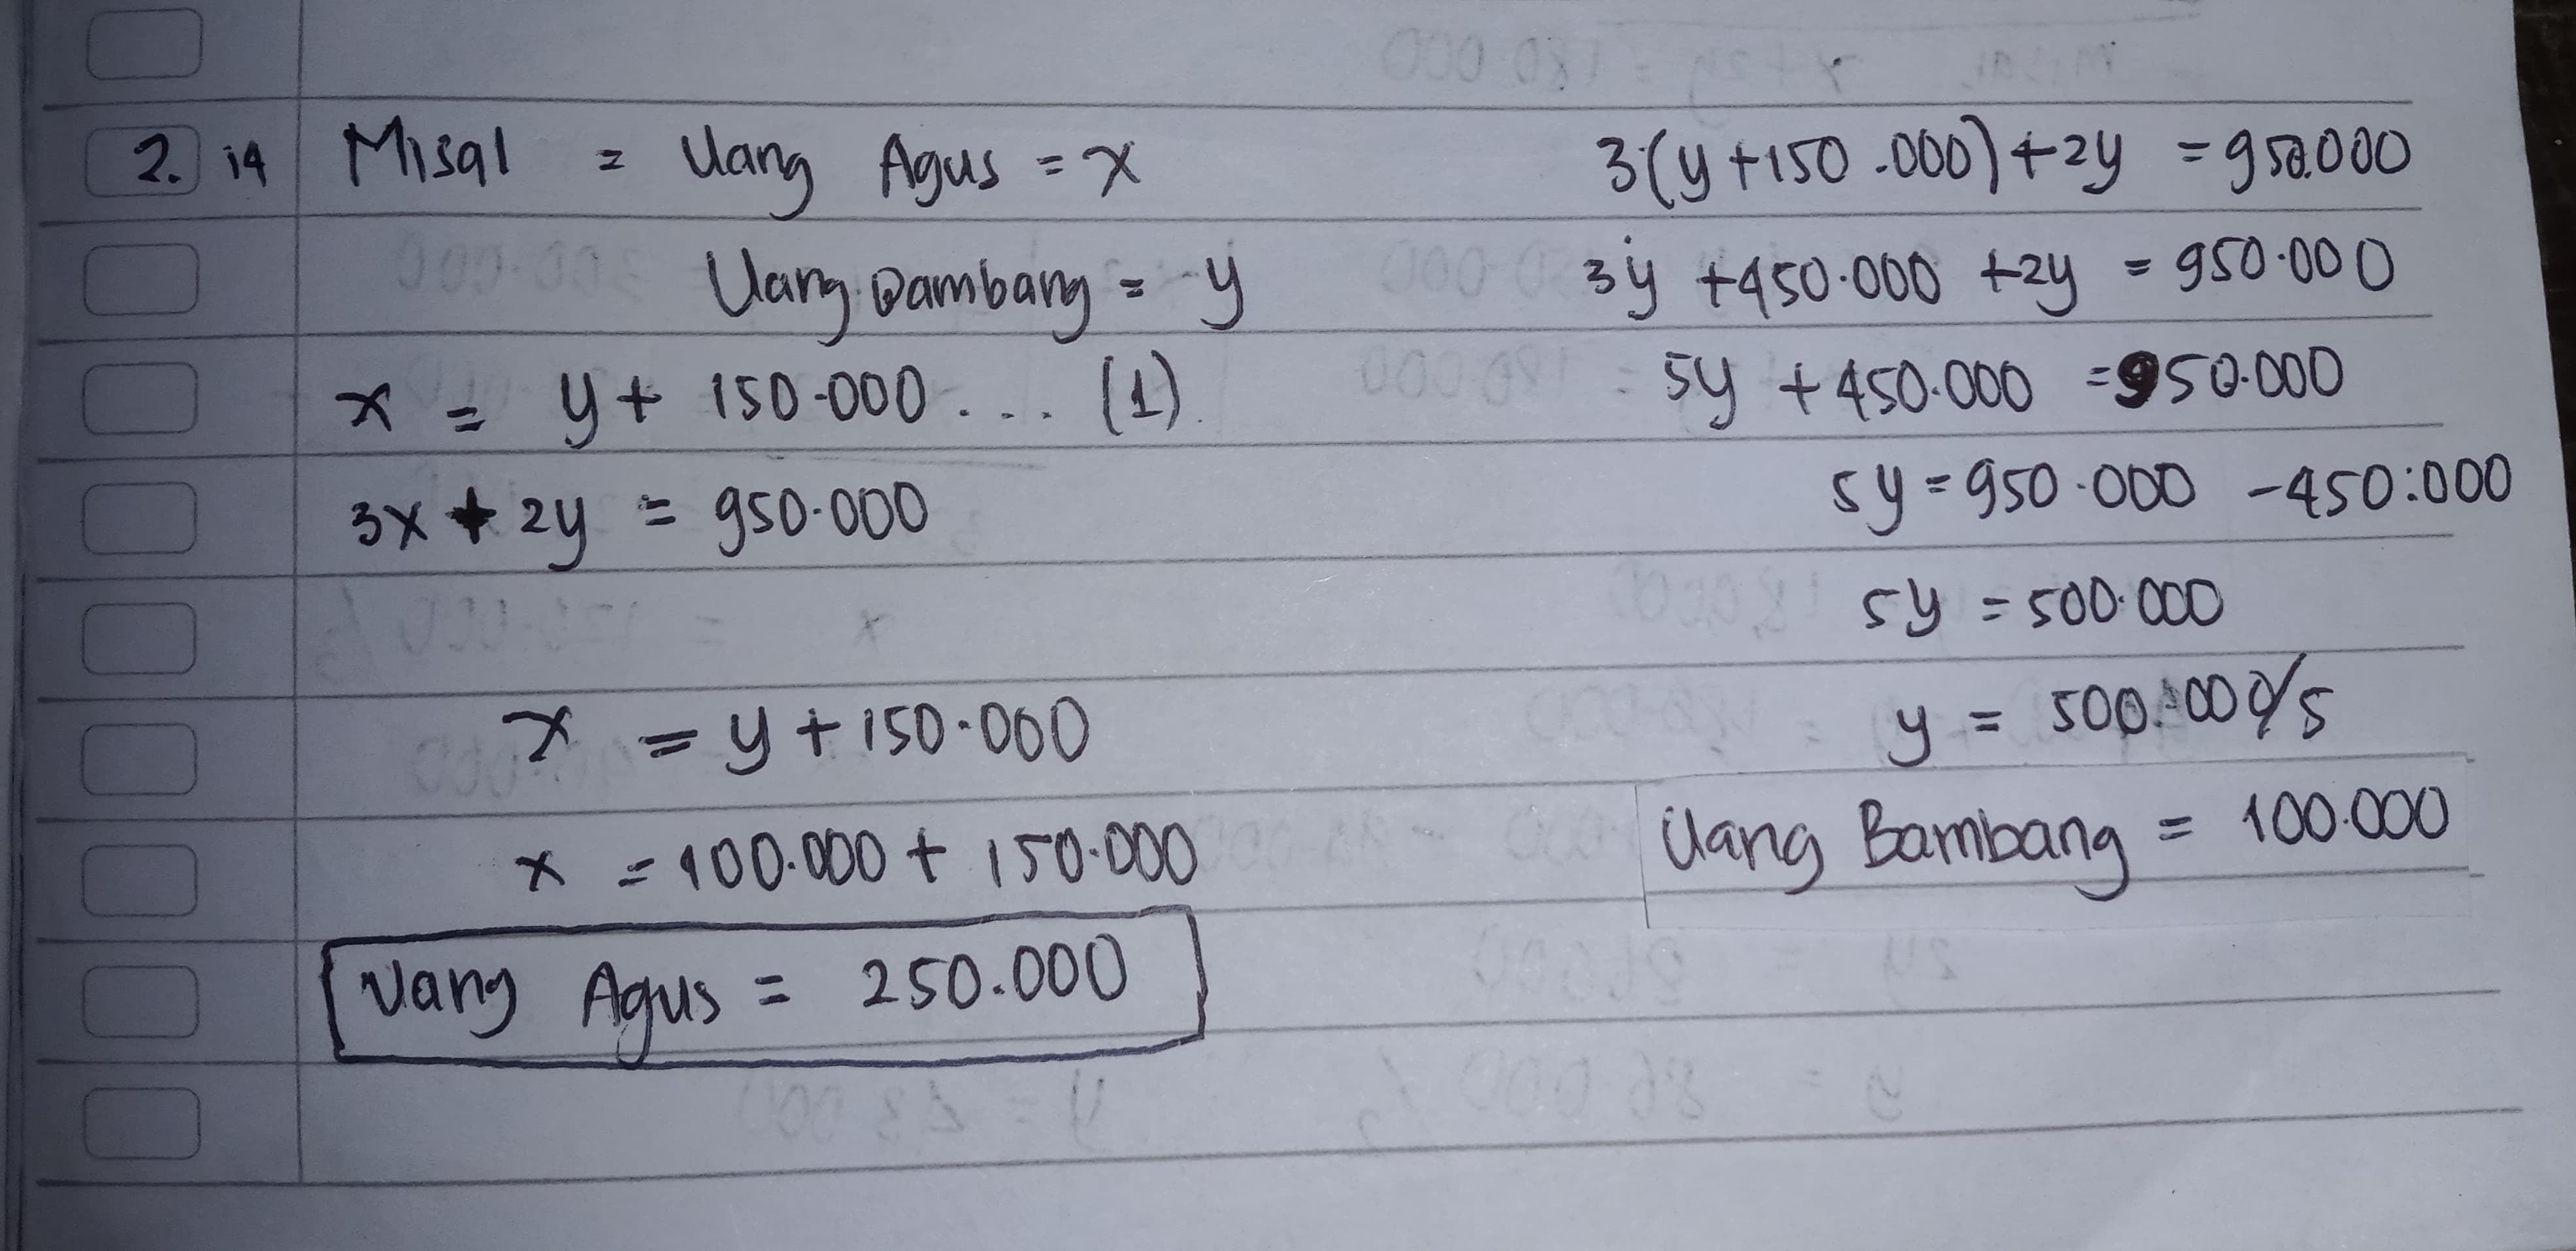 2. 19 Misal = Uang Agus = x
Uang Bambang = y
x = y + 150.000 ... (1)
3x + 2y = 950.000
x = y + 150.000
x = 100.000 + 150.000
Uang Agus = 250.000
3(y + 150.000) + 2y = 950.000
3y + 450.000 + 2y = 950.000
5y + 450.000 = 950.000
5y = 950.000 - 450.000
5y = 500.000
y = 500.000/5
Uang Bambang = 100.000